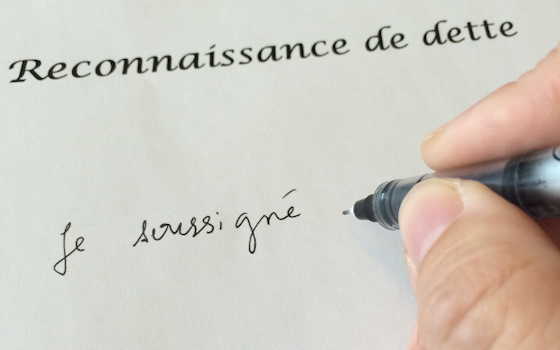 Reconnaissance de dette
Je soussigné